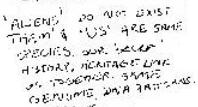 'ALIENS' DO NOT EXIST
'THEM' & 'US' ARE SAME
SPECIES. OUR 'SECRET'
HISTORY, HERITAGE LINK
US TOGETHER. SHARE
GENUINE DATA PATTERNS.